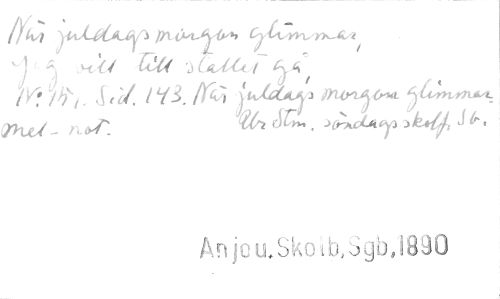 När juldagsmorgon glimmar,
jag vill till stallet gå,
N:o 15, Sid. 143. När juldagsmorgon glimmar.
Mel-not. Ur Stm. söndagsskolf. Sb.
Anjou.Skolb,Sgb,1890